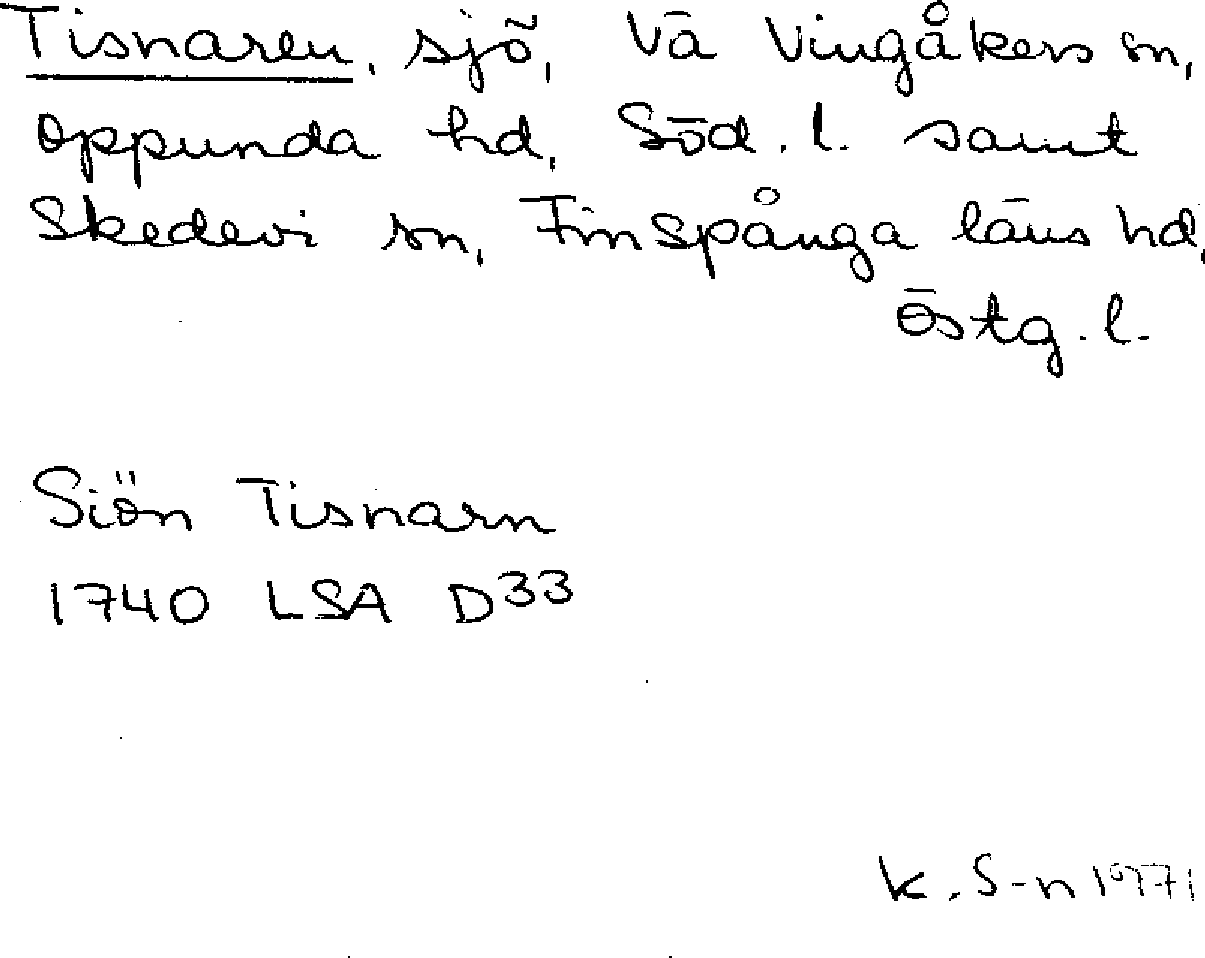 Tisnaren, sjö, Vä Vingåkers sn,
Oppunda hd, Söd. l. samt
Skedevi sn, Finspånga läns hd,
Östg. l.
Siön Tisnarn
1740 LSA D33
K. S-n 1971